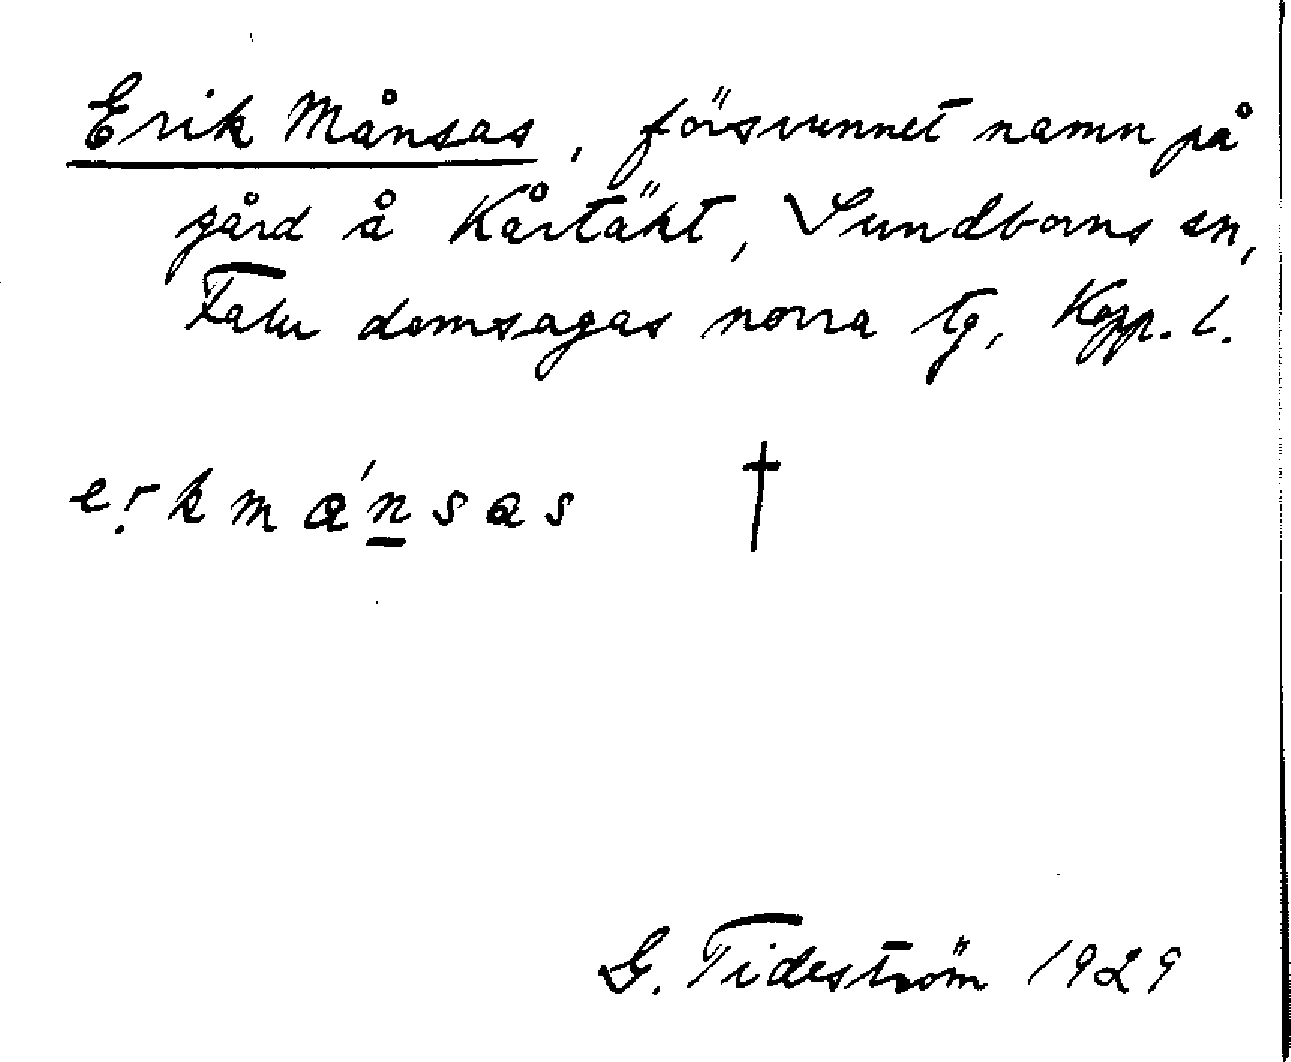 Erik Månsas, försvunnet namn på
gård å Kårtäkt, Sundborns sn,
Falu domsagas norra tg, Kopp. l.
e ṛ k m a ́n̲ s a s †
G. Tideström 1929